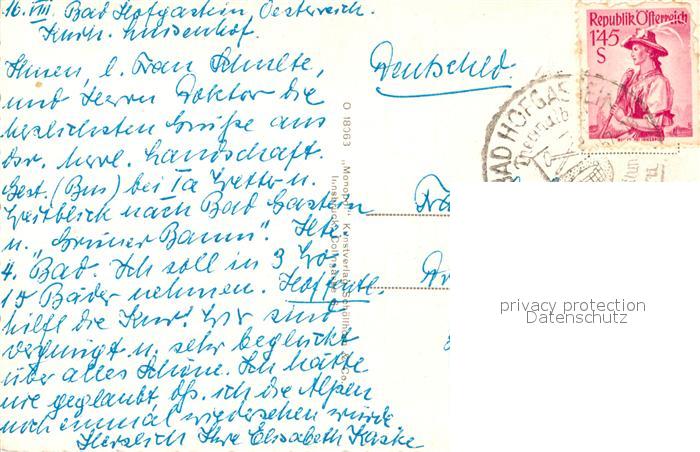 16. VIII. Bad Hofgastein, Oesterreich.
Kurh. Luisenhof.
Ihnen, l. Frau Schulte,
und Herrn Doktor die
herzlichsten Grüße aus
dsr. herrl. Landschaft.
Gest. (Bus) bei Ia Wetter u.
Weitblick nach Bad Gastein
u. "Grüner Baum". Hte
4. Bad. Ich soll in 3 Wo
15 Bäder nehmen. Hoffentl.
hilft die Kur! Wir sind
vergnügt u. sehr beglückt
über alles Schöne. Ich hätte
nie geglaubt, dß. ich die Alpen
noch einmal wiedersehen würde
Herzlich Ihre Elisabeth Kaske
Deutschld.
O 18363 "Monopol" Kunstverlag Schöllhorn & Co.
Innsbruck
Republik Österreich
1'45
S
BAD HOFGASTEIN
privacy protection
Datenschutz